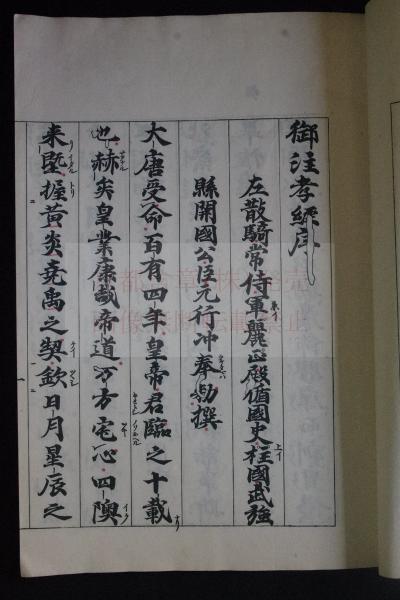 御注孝經序
左散騎常侍軍麗正殿脩國史柱國武強
縣開國公臣元行冲奉勅撰
大唐受命百有四年皇帝君臨之十載
也赫矣皇業康哉帝道万方宅心四隩
来曁握黃炎堯禹之契欽日月星辰之